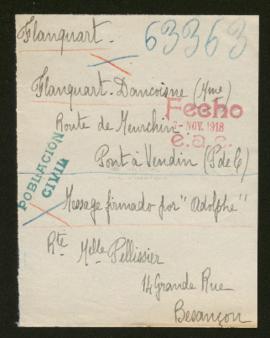 Flanquart
63363
Flanquart-Dancoigne (Mme)
Fecho
Route de Meurchin
NOV. 1918
e.a.c.
Pont à Vendin (P de C)
POBLACION
CIVIL
Message firmado por "Adolphe"
Rte Melle Pellissier
14 Grande Rue
Besançon